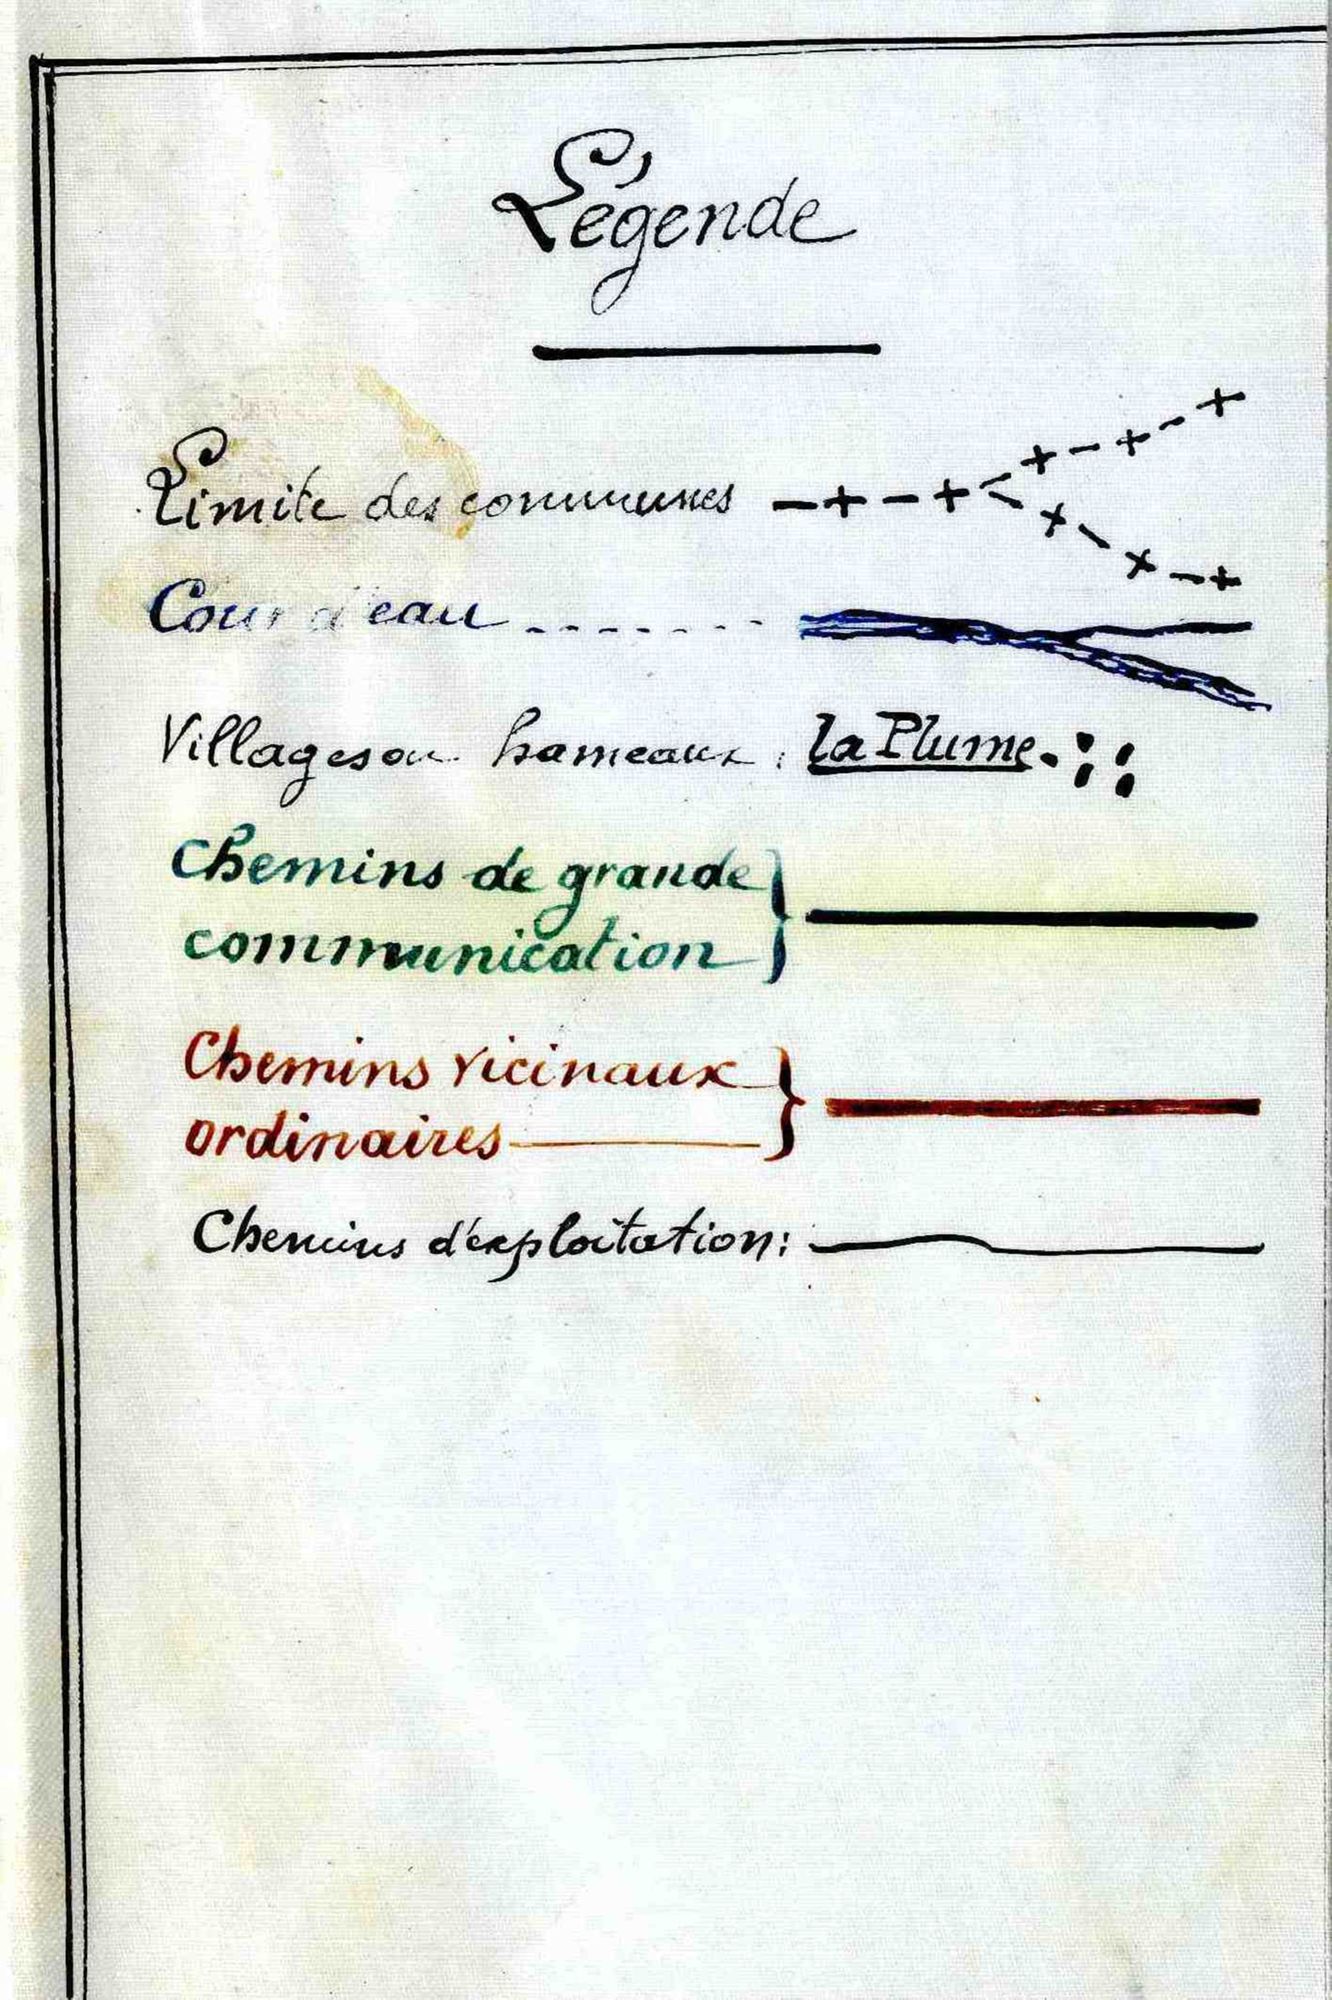 Légende
Limite des communes
Cour d'eau
Villages ou hameaux : la Plume
Chemins de grande
communication
Chemins vicinaux
ordinaires
Chemins d'exploitation: